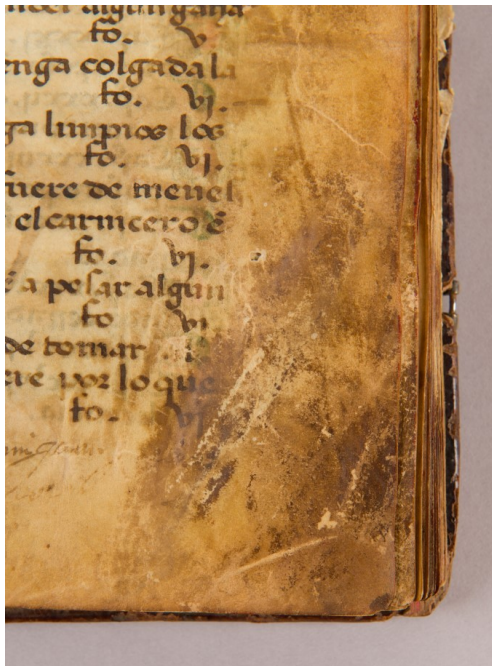 algun gana
fo. v
enga colgada la
fo. vj.
ga limpios los
fo. vj.
fuere de menel
el carnicero ē
fo. vj.
a pesar algun
fo vj
de tomar
por lo que
fo. vj